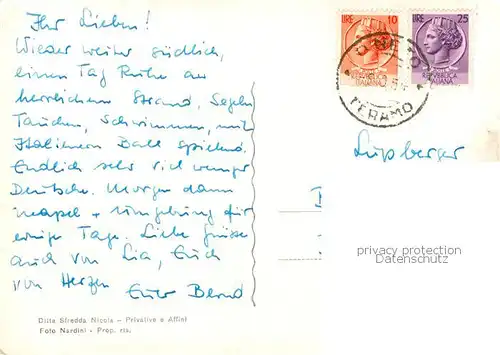 Ihr Lieben!
Wieder weiter südlich,
einen Tag Ruhe an
herrlichem Strand, Segeln
Tauchen, Schwimmen, mit
Italienern Ball spielend.
Endlich sehr viel weniger
Deutsche. Morgen dann
Neapel + Umgebung für
einige Tage. Liebe Grüsse
auch von Lia, Euch
von Herzen
Euer Bernd
LIRE 10
LIRE 25
TERAMO
privacy protection
Datenschutz
Ditta Sfredda Nicola - Privative e Affini
Foto Nardini - Prop. ris.